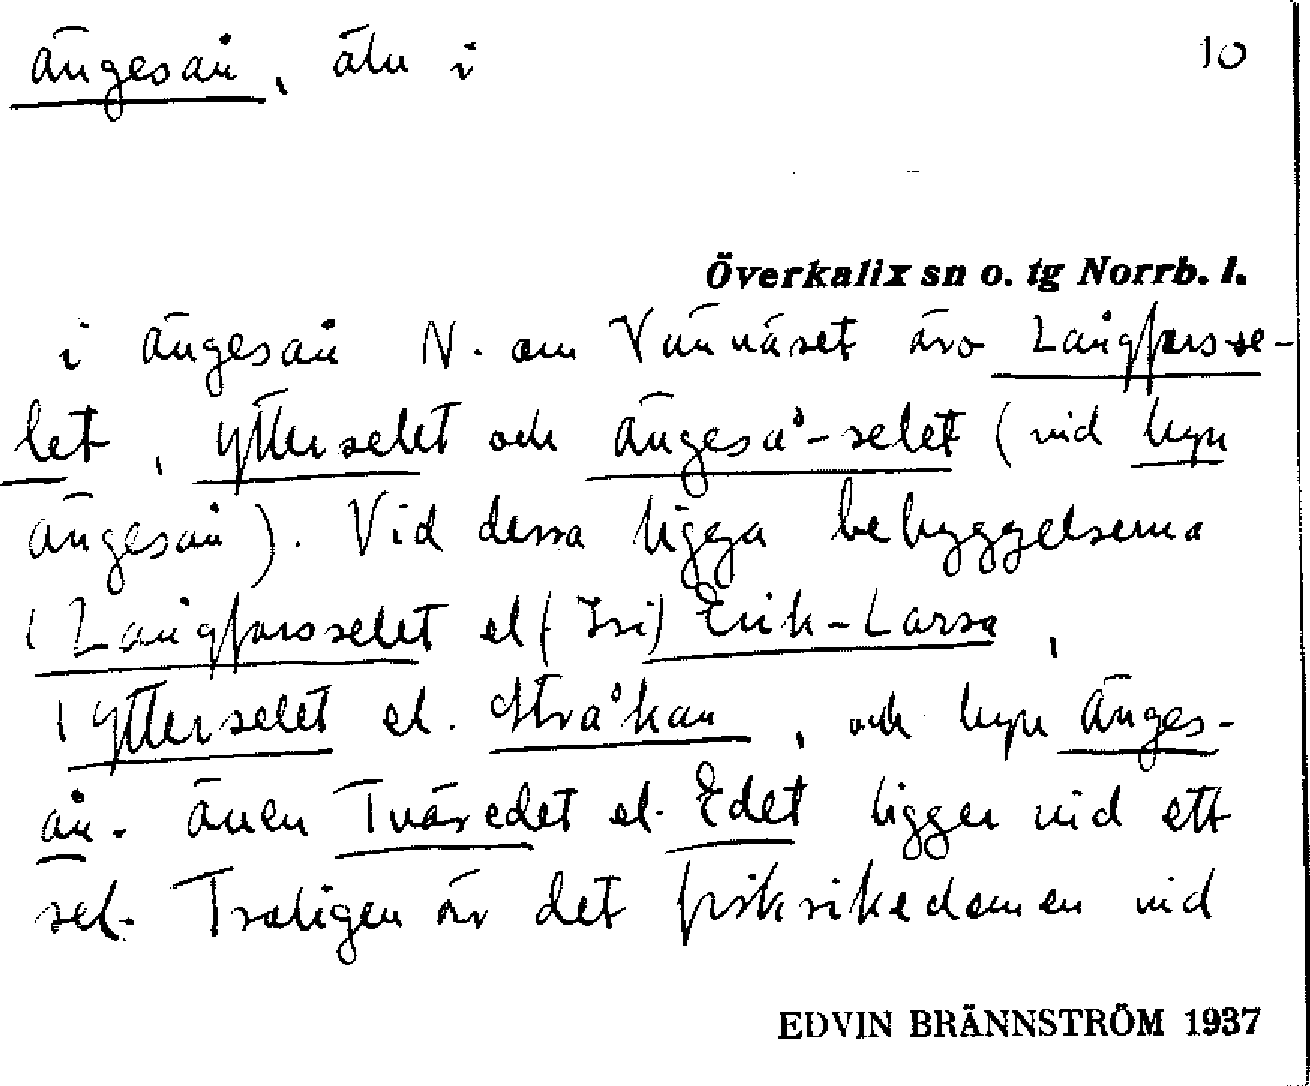 Ängesån, älv i 10
Överkalix sn o. tg Norrb. l.
i Ängesån N. om Vännäset äro Långforsse-
let, Ytterselet och Ängeså-selet (vid byn
Ängesån). Vid dessa ligga bebyggelserna
Långforsselet el ( ) Erik-Larsa,
Ytterselet el. Stråkan, och byn Änges-
ån. Även Tväredet el. Edet ligger vid ett
sel. Troligen är det fiskrikedomen vid
EDVIN BRÄNNSTRÖM 1937